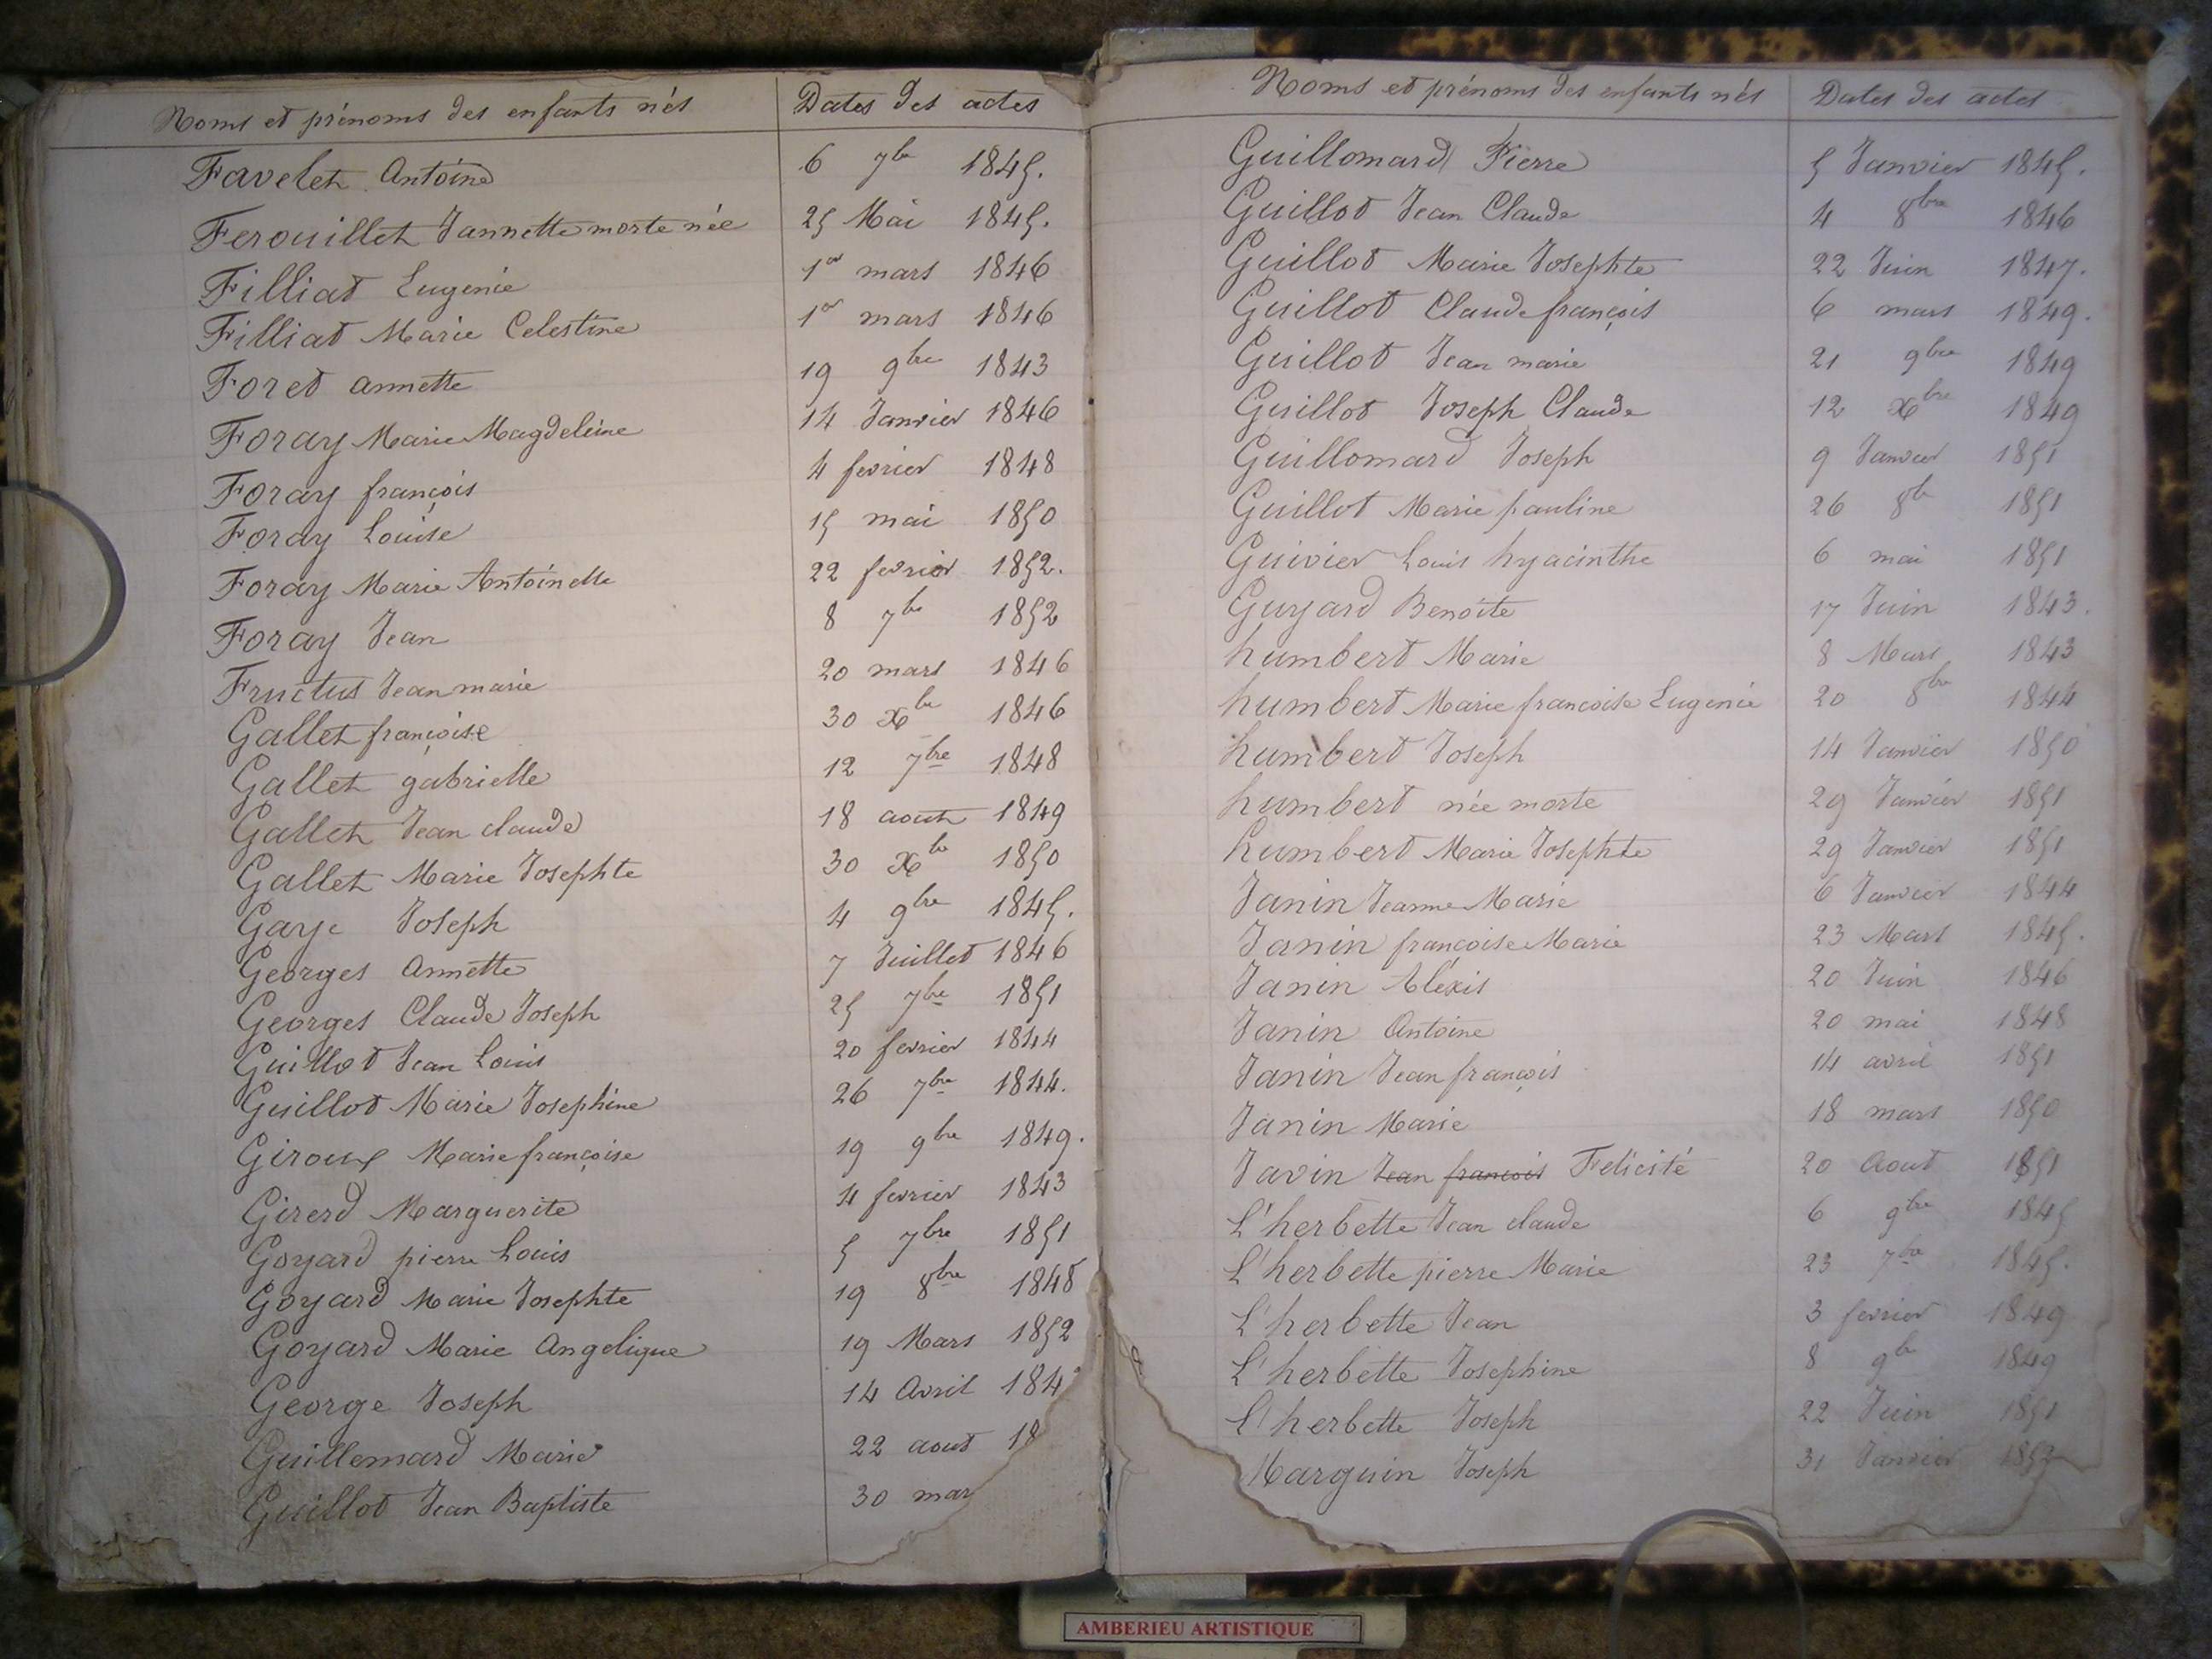 Noms et prénoms des enfants nés Dates des actes
Favelet Antoine 6 7bre 1845.
Ferouillet Jannette morte née 25 Mai 1845.
Filliat Eugenie 1er mars 1846
Filliat Marie Celestine 1er mars 1846
Foret annette 19 9bre 1843
Foray Marie Magdeleine 14 Janvier 1846
Foray françois 4 fevrier 1848
Foray Louise 15 mai 1850
Foray Marie Antoinette 22 fevrier 1852.
Foray Jean 8 7bre 1852
Fructus Jean marie 20 mars 1846
Gallet françoise 30 Xbre 1846
Gallet gabrielle 12 7bre 1848
Gallet Jean claude 18 aout 1849
Gallet Marie Josephte 30 Xbre 1850
Joseph 4 9bre 1845.
Georges Annette 7 Juillet 1846
Georges Claude Joseph 25 7bre 1851
Guillot Jean Louis 20 fevrier 1844
Guillot Marie Josephine 26 7bre 1844.
Giroux Marie françoise 19 9bre 1849.
Girerd Marguerite 4 fevrier 1843
Goyard pierre Louis 5 7bre 1851
Goyard Marie Josephte 19 8bre 1848
Goyard Marie Angelique 19 Mars 1852
George Joseph 14 Avril 184
Guillemard Marie 22 aout 18
Guillot Jean Baptiste 30 mar
Noms et prénoms des enfants nés Dates des actes
Guillomard Pierre 5 Janvier 1845.
Guillot Jean Claude 4 8bre 1846
Guillot Marie Josephte 22 Juin 1847.
Guillot Claude françois 6 mars 1849.
Guillot Jean marie 21 9bre 1849
Guillot Joseph Claude 12 Xbre 1849
Guillomard Joseph 9 Janvier 1851
Guillot Marie pauline 26 8bre 1851
Guivier Louis hyacinthe 6 mai 1851
Guyard Benoite 17 Juin 1843.
humbert Marie 8 Mars 1843
humbert Marie francoise Eugenie 20 8bre 1844
humbert Joseph 14 Janvier 1850
humbert née morte 29 Janvier 1851
humbert Marie Josephte 29 Janvier 1851
Janin Jeanne Marie 6 Janvier 1844
Janin françoise Marie 23 Mars 1845.
Janin Alexis 20 Juin 1846
Janin Antoine 20 mai 1848
Janin Jean françois 14 avril 1851
Janin Marie 18 mars 1850
Javin Jean francois Felicité 20 Aout 1851
L'herbette Jean claude 6 9bre 1845
L'herbette pierre Marie 23 7bre 1845.
L'herbette Jean 3 fevrier 1849
L'herbette Josephine 8 9bre 1849
L'herbette Joseph 22 Juin 1851
Marguin Joseph 31 Janvier
AMBERIEU ARTISTIQUE